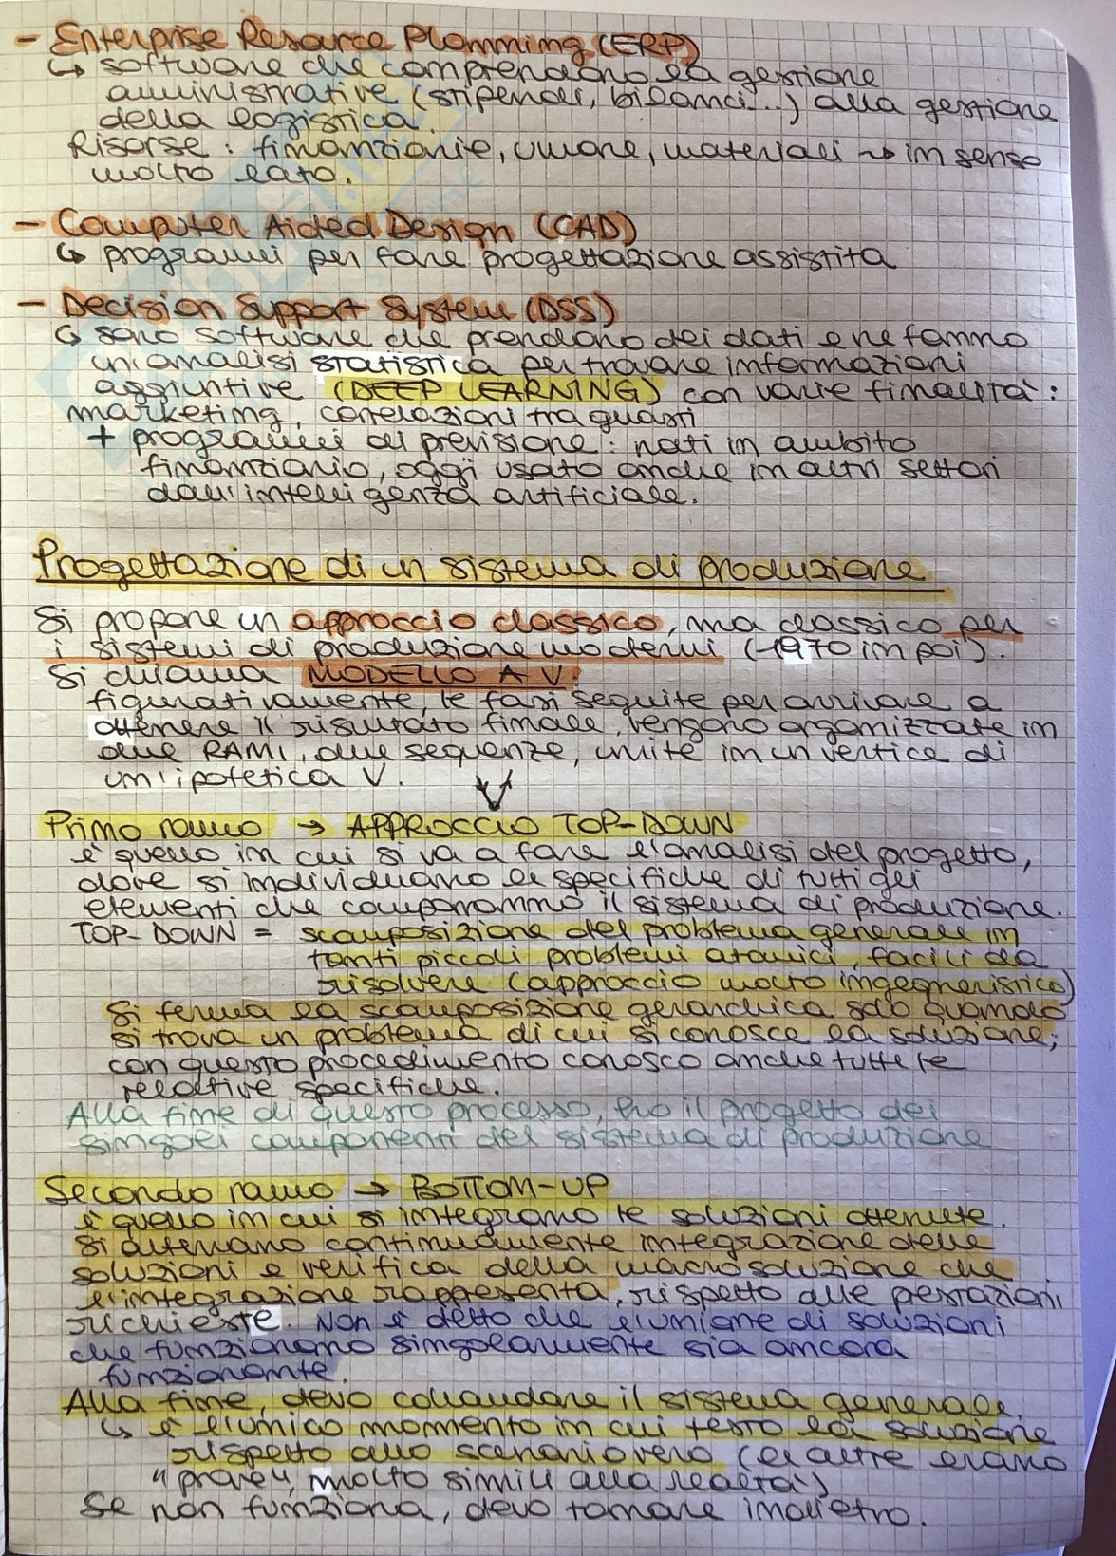 - Enterprise Resource Planning (ERP)
↳ software che comprendono la gestione
amministrative (stipendi, bilanci...) alla gestione
della logistica.
Risorse: finanziarie, umane, materiali → in senso
molto lato.
- Computer Aided Design (CAD)
↳ programmi per fare progettazione assistita
- Decision Support System (DSS)
↳ sono software che prendono dei dati e ne fanno
un'analisi statistica per trovare informazioni
aggiuntive (DEEP LEARNING) con varie finalità:
marketing, correlazioni tra guasti
+ programmi di previsione: nati in ambito
finanziario, oggi usato anche in altri settori
dall'intelligenza artificiale.
Progettazione di un sistema di produzione
Si propone un approccio classico, ma classico per
i sistemi di produzione moderni (~1970 in poi).
Si chiama MODELLO A V:
figurativamente, le fasi seguite per arrivare a
ottenere il risultato finale, vengono organizzate in
due RAMI, due sequenze, unite in un vertice di
un'ipotetica V.
Primo ramo → APPROCCIO TOP-DOWN
è quello in cui si va a fare l'analisi del progetto,
dove si individuano le specifiche di tutti gli
elementi che comporranno il sistema di produzione.
TOP-DOWN = scomposizione del problema generale in
tanti piccoli problemi atomici, facili da
risolvere (approccio molto ingegneristico)
Si ferma la scomposizione gerarchica solo quando
si trova un problema di cui si conosce la soluzione;
con questo procedimento conosco anche tutte le
relative specifiche.
Alla fine di questo processo, ho il progetto dei
singoli componenti del sistema di produzione
Secondo ramo → BOTTOM-UP
è quello in cui si integrano le soluzioni ottenute.
Si alternano continuamente integrazione delle
soluzioni e verifica della macrosoluzione che
l'integrazione rappresenta, rispetto alle prestazioni
richieste. Non è detto che l'unione di soluzioni
che funzionano singolarmente sia ancora
funzionante.
Alla fine, devo collaudare il sistema generale.
↳ è l'unico momento in cui testo la soluzione
rispetto allo scenario vero (le altre erano
"prove", molto simili alla realtà)
Se non funziona, devo tornare indietro.